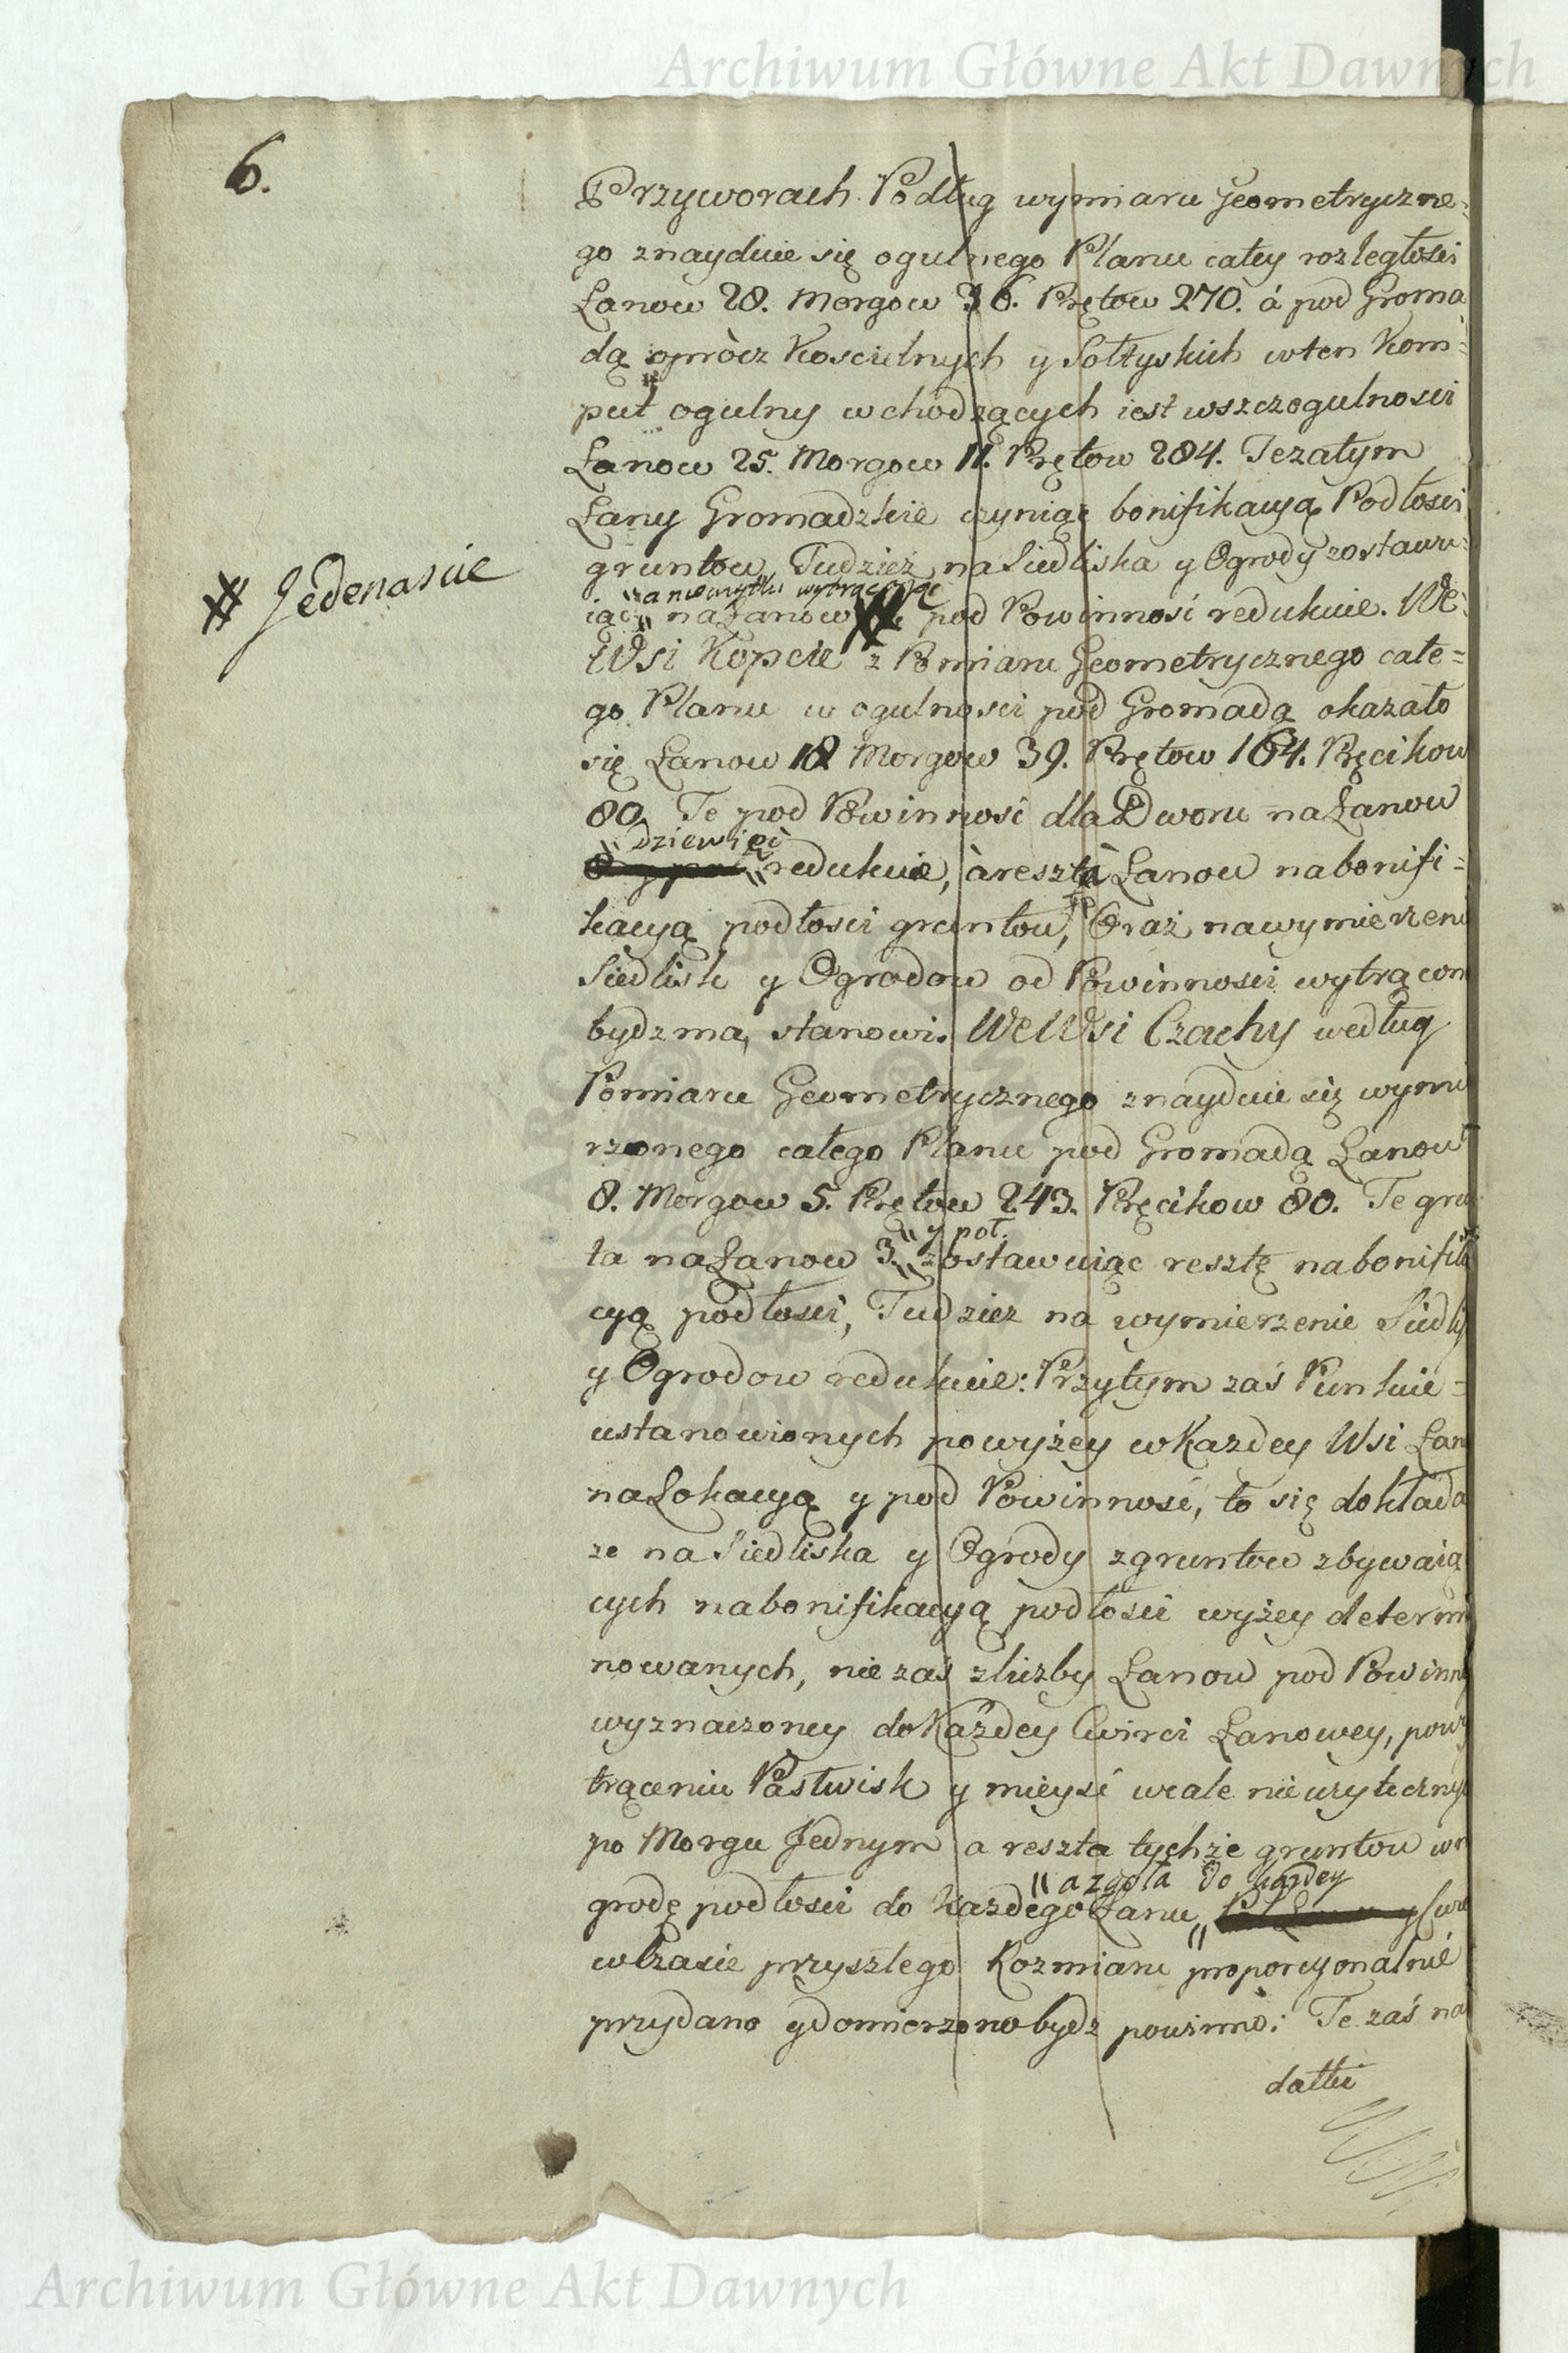 Archiwum Główne Akt Dawnych
6.
Przyworach Podług wymiaru Geometryczne=
go znayduie się ogulnego Planu całey rozległosci
Łanow 28. Morgow 36. Prętow 270. á pod Groma
dą oprócz Koscielnych y Sołtyskich wten Kom=
put ogulny wchodzących iest wszczegulnosci
Łanow 25. Morgow 11. Prętow 284. Te zatym
Łany Gromadzkie czyniąc bonifikacyą Podłosci
gruntow Tudziesz na Siedliska y Ogrody zostawu=
za nieużytki wytrącaiąc
iąc na Łanow pod Powinnosć redukuie. We
# Jedenascie
Wsi Kopcie z Pomiaru Geometrycznego całe=
go Planu w ogulnosci pod Gromadą okazało
się Łanow 18 Morgow 39. Prętow 164. Pręcikow
80. Te pod Powinnosć dla Dworu na Łanow
Dziewięć
redukuie, à reszta Łanow na bonifi=
kacyą podłosci gruntow, Oraz na wymierzeni
Siedlisk y Ogrodow od Powinnosci wytrącon
bydz ma, stanowi. We Wsi Czachy według
Pomiaru Geometrycznego znayduie się wymi
rzonego całego Planu pod Gromadą Łanow
8. Morgow 5. Prętow 243. Pręcikow 80. Te gru
y poł.
ta na Łanow 3. zostawuiąc resztę na bonifika
cyą podłosci, Tudziez na wymierzenie Siedli
y Ogrodow redukuie: Przytym zaś Punkcie=
ustanowionych powyżey w Kazdey Wsi Łan
na Lokacyą y pod Powinnosć, to się dokłada
ze na Siedliska y Ogrody z gruntow zbywaią
cych na bonifikacyą podłosci wyżey determi
nowanych, nie zaś z liczby Łanow pod Powinn
wyznaczoney do Każdey Cwirci Łanowey, powy
trąceniu Pastwisk y mieysc wcale nieuzytecznyc
po Morgu Jednym a reszta tychże gruntow wn
a zgoła do kazdey
grodę podłosci do każdego Łanu y Cwi
w Czasie przyszłego Rozmiaru proporcyonalnie
przydano y domierzono bydz powinno: Te zaś na
datki
Archiwum Główne Akt Dawnych